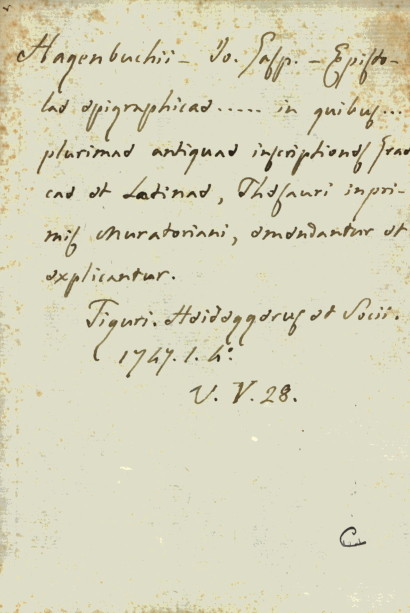 Hagenbuchii - Jo. Casp. - Episto-
las epigraphicas ..... in quibus ...
plurimas antiquas inscriptiones Grae
cas et Latinas, Thesauri inpri-
mis Muratoriani, emendantur et
explicantur.
Tiguri. Heideggerus et Socii.
1747. 1. 4º.
V. V. 28.
C